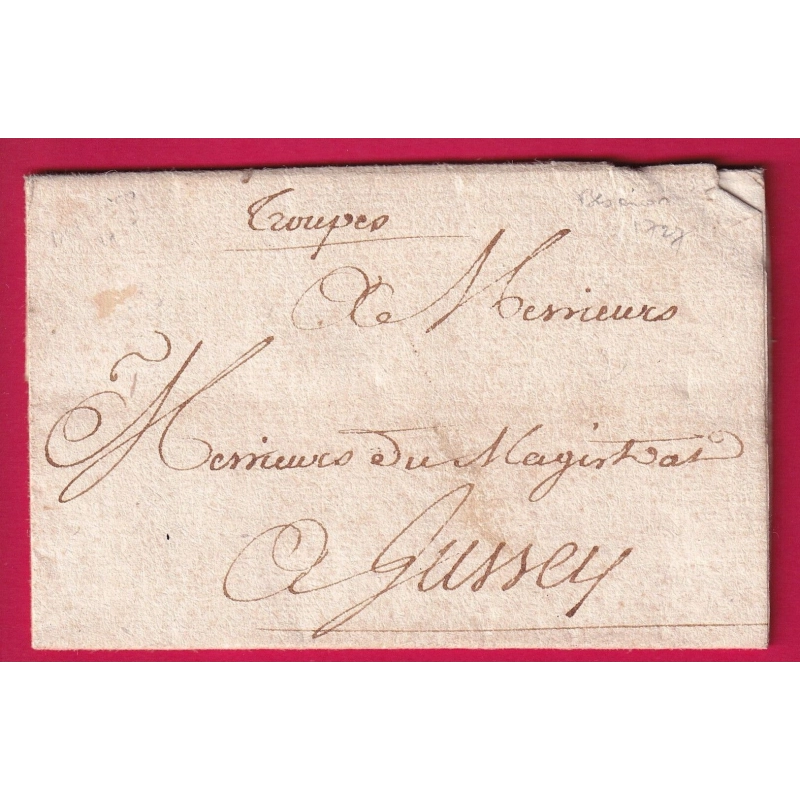 Troupes
A Messieurs
Messieurs du Magistrat
A Jussey